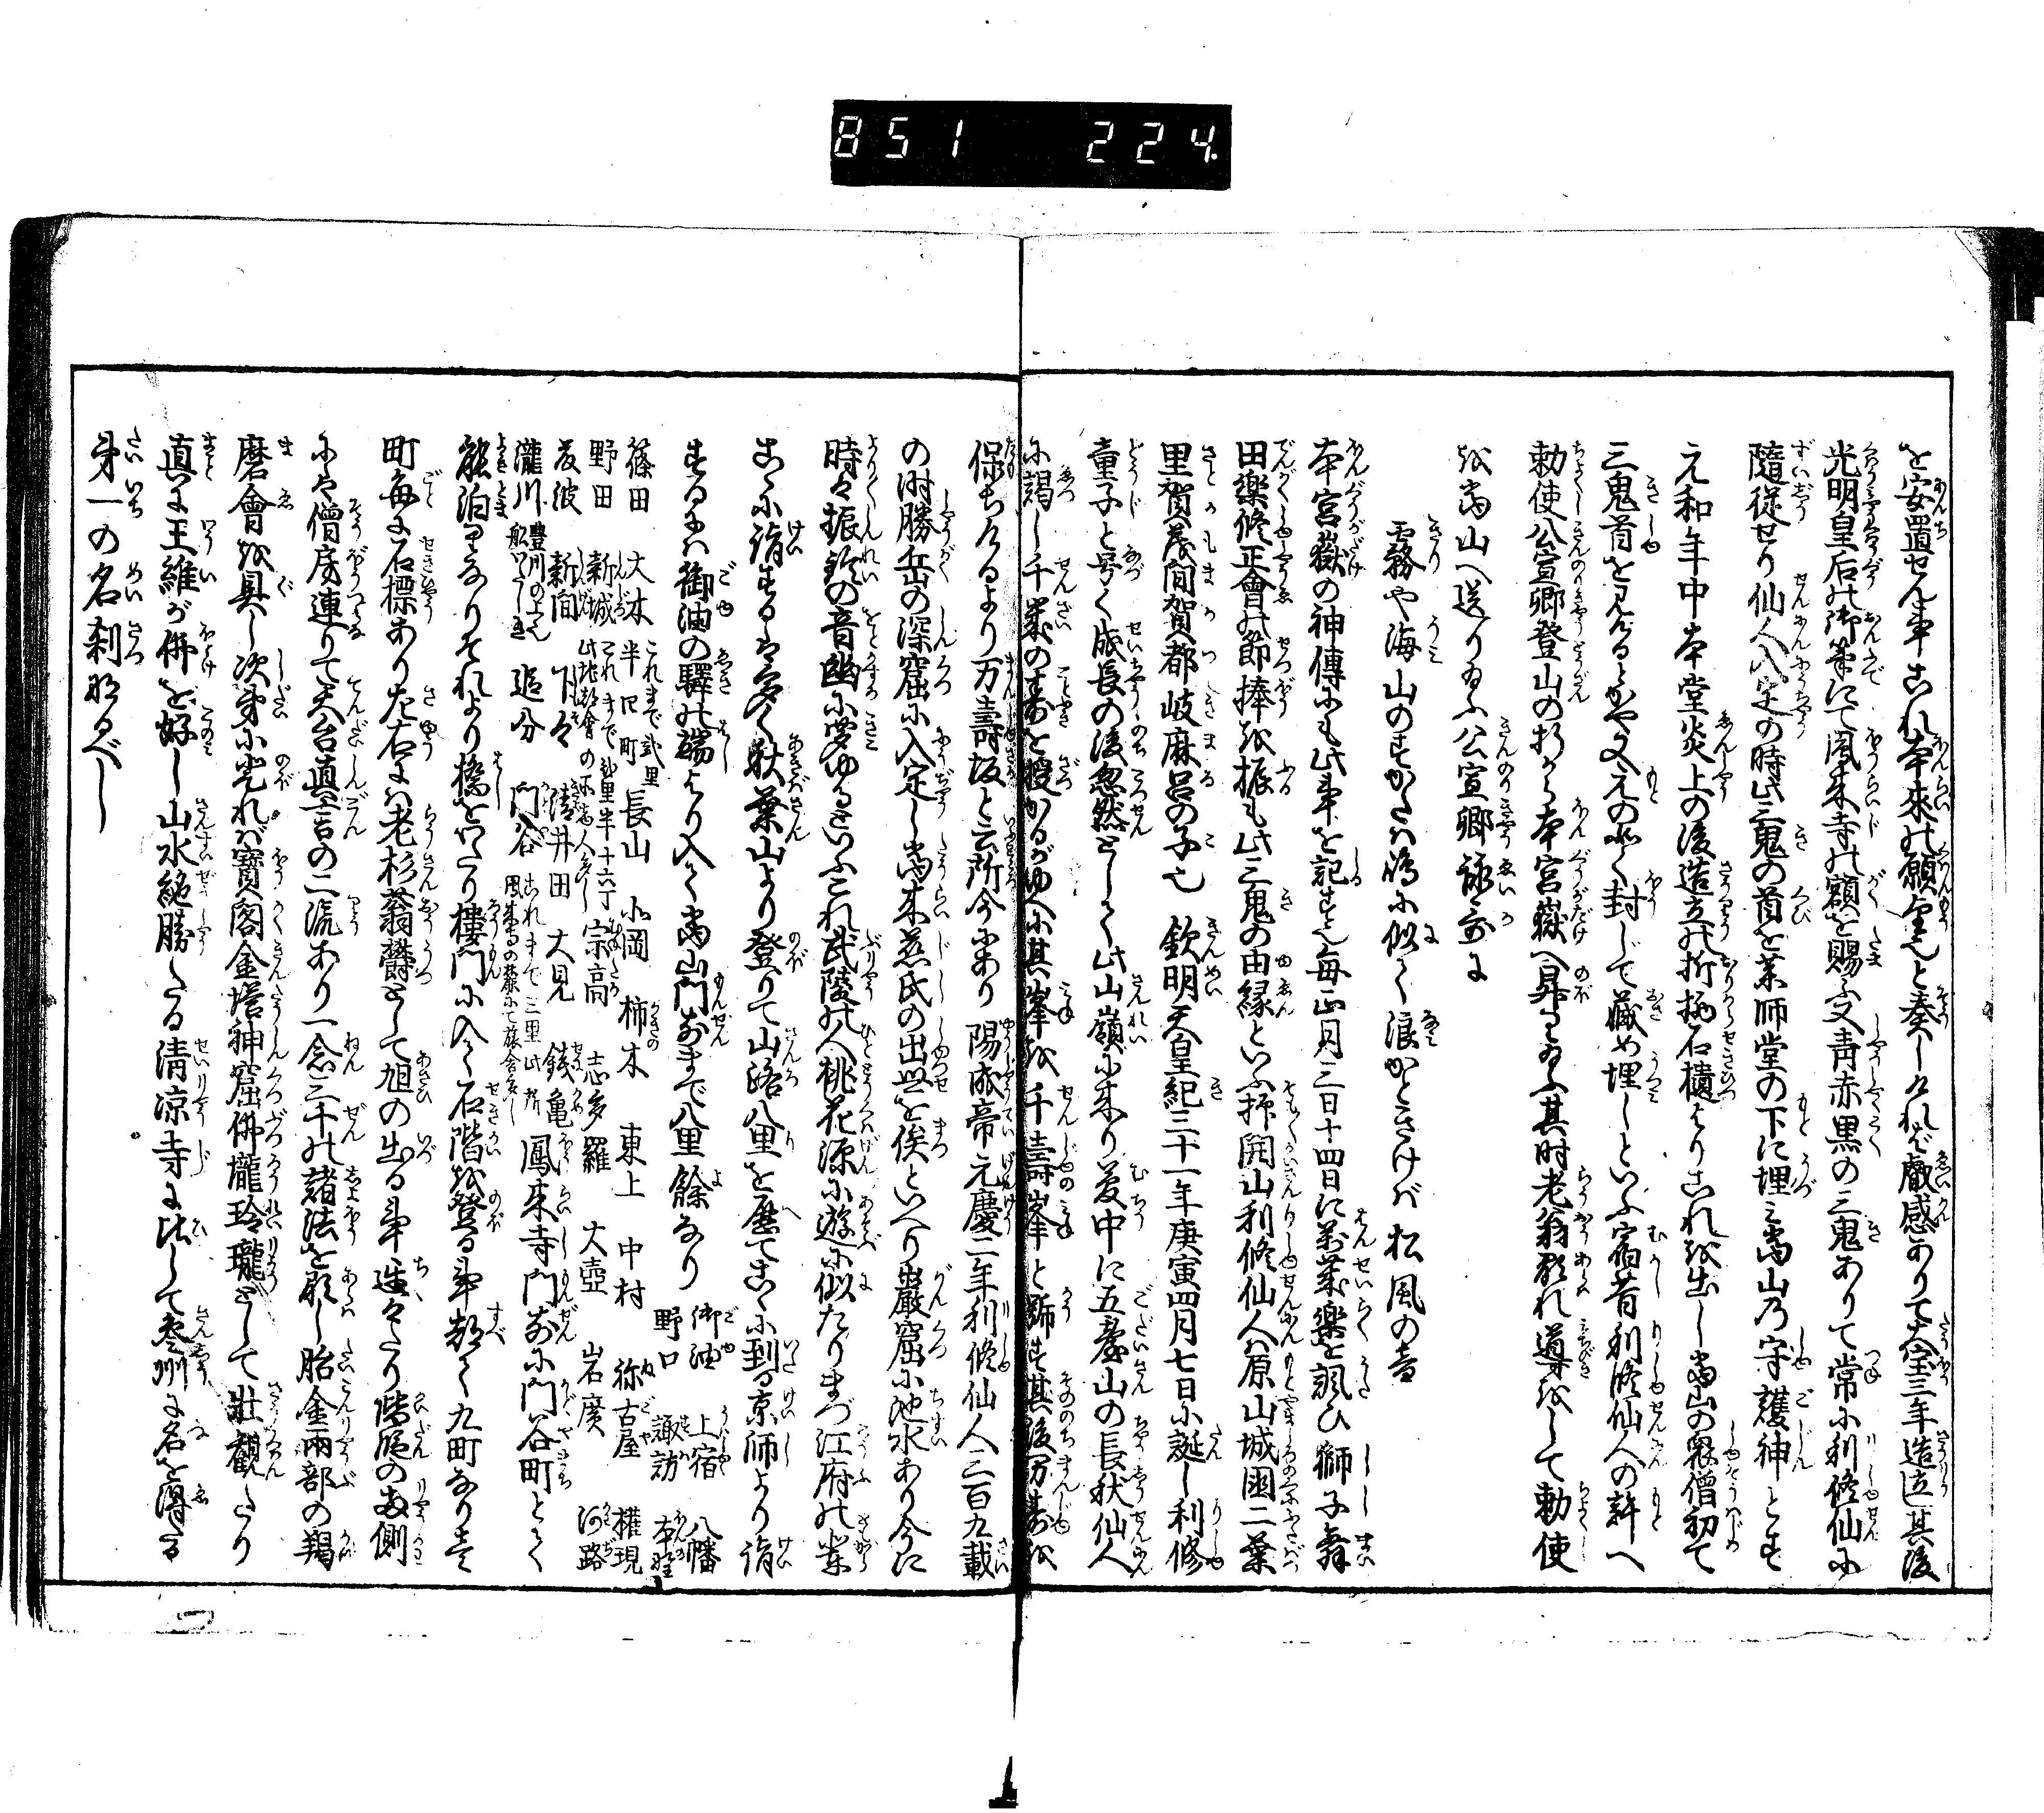 851 224.
を安置せん事これ本来の願望也と奏しければ叡感ありて大宝三年造立し其後
光明皇后の御筆にて鳳来寺の額を賜ふ又青赤黒の三鬼ありて常に利修仙に
随従せり仙人入定の時此三鬼の首を薬師堂の下に埋み当山乃守護神とす
元和年中本堂炎上の後造立の折柄石櫃よりこれを出し当山の衆僧初て
三鬼首を見るとかや又元の如く封じて蔵め埋しといふ宿昔利修仙人の許へ
勅使公宣卿登山の折から本宮嶽へ昇り給ふ其時老翁顕れ導をして勅使
を当山へ送り給ふ公宣卿詠哥に
霧や海山のすがたは嶋に似て浪かときけば松風の音
本宮嶽の神傳にも此事を記す也毎正月三日十四日に万歳楽を諷ひ獅子舞
田楽修正會の節捧を振も此三鬼の由縁といふ抑開山利修仙人は原山城国二葉
里賀茂間賀都岐麻呂の子也 欽明天皇紀三十一年庚寅四月七日に誕し利修
童子と号く成長の後忽然として此山嶺に来り夢中に五臺山の長秋仙人
に謁し千歳の寿を授かるがゆへに其峯を千壽峯と号す其後万寿を
保ちけるより万壽坂と云所今にあり 陽成帝元慶二年利修仙人三百九載
の時勝岳の深窟に入定し当来慈氏の出世を俟といへり巌窟に池水あり今に
時々振鈴の音幽に聞ゆるといふこれ武陵の人桃花源に遊に似たりまづ江府の輩
こゝに詣するは多く秋葉山より登りて山路八里を歴てこゝに到る京師より詣
するには御油の驛の端より入て当山門前まで八里餘なり
御油 上宿 八幡
野口 諏訪 本野
篠田 大木 これまで弐里 半四町 長山 小岡 柿木 東上 中村 弥古屋 権現
野田 新城 これまで弐里半十六丁 此地都會の所商人多し 宗高 志多羅 大壺 岩廣 河路
茂波 新間 下々 清井田 大見 銭亀 鳳来寺門前に門谷町とて
瀧川 豊川の上也 舩わたし有 追分 門谷 これまで三里此所 鳳来寺の麓にて旅舎多し
能泊りなりそれより橋をわたり樓門に入て石階を登る事都て九町なり壱
町毎に石標あり左右には老杉蓊欝として旭の出る事遅々たり階段の両側
にや僧房連りて天台真言の二流あり一念三千の諸法を顕し胎金両部の羯
磨會を具し次第に光れば寶閣金塔神窟佛龕玲瓏として壮観たり
真に王維が佛を好し山水絶勝たる清凉寺に比して参州に名を得る
第一の名刹なるべし